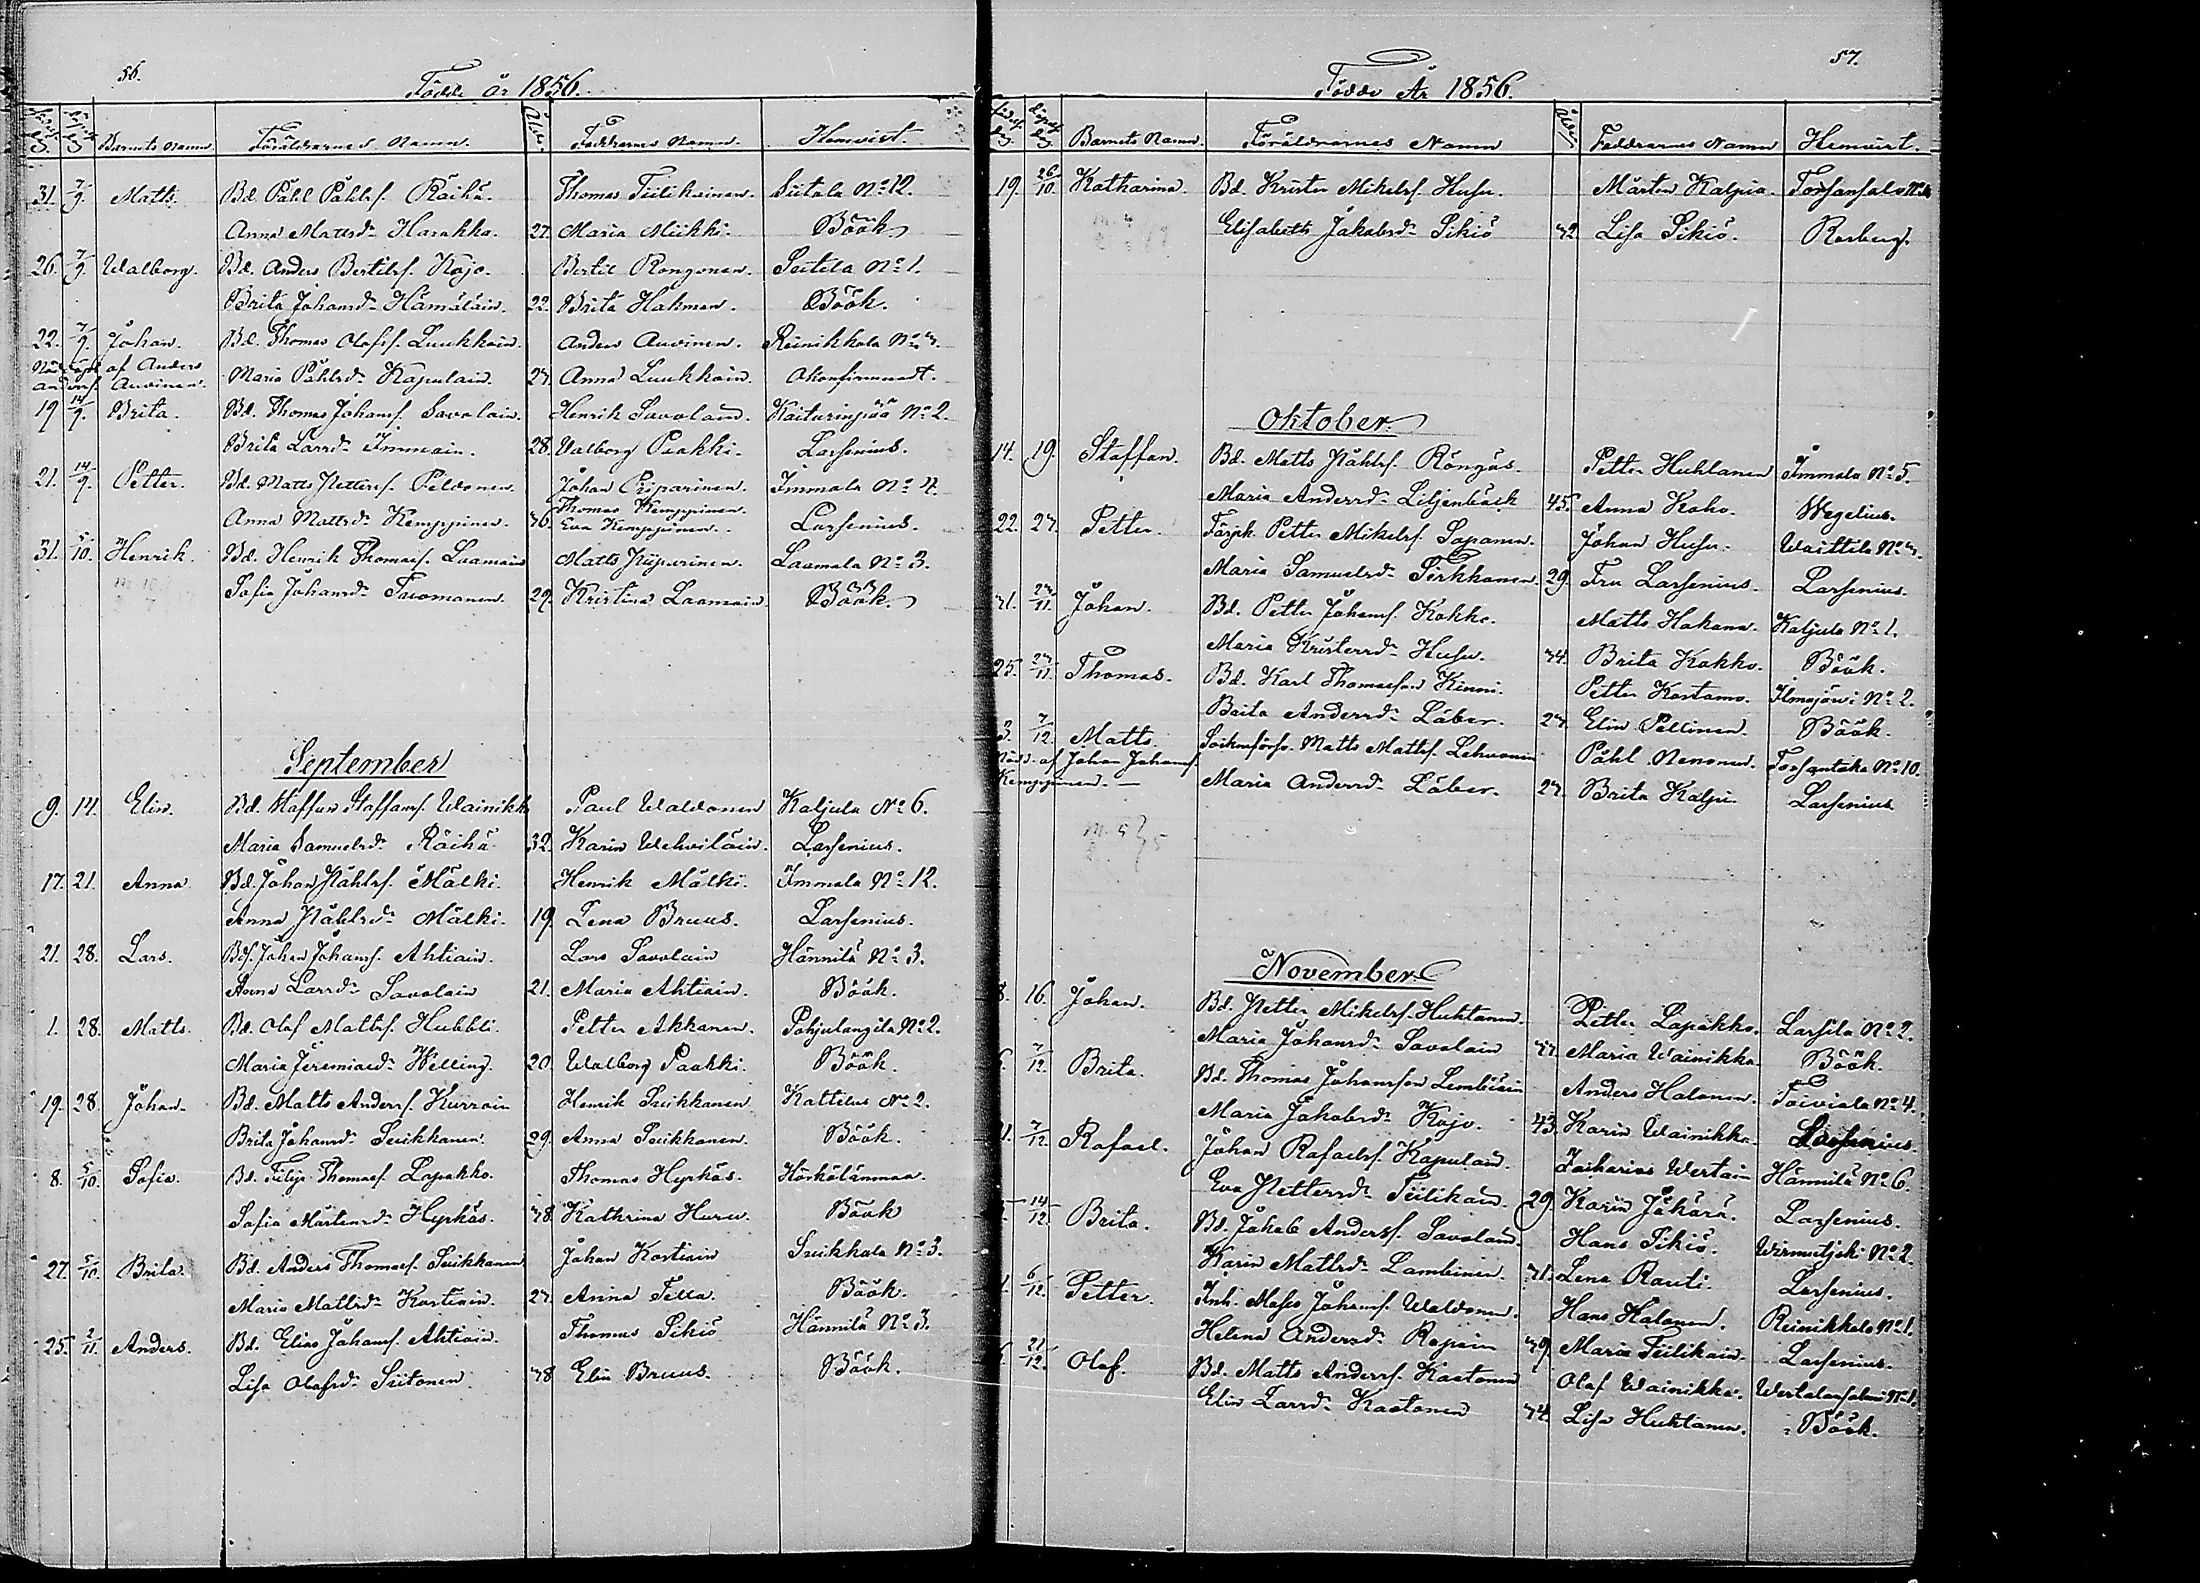 56.
Födde år 1856.
Barnets namn. Föräldrarnes Namn. Ålder. Faddrarnes Namn. Hemvist.
31. 7/9. Matts. Bd. Påhl Påhlsf. Räihä. Thomas Tiilikainen. Siitola No 12.
Anna Mattsdr Harakka. 27. Maria Miikki. Böök.
26. 7/9. Walborg. Bd. Anders Bertilsf. Kojo. Bertil Rongonen. Siitola No 1.
Brita Johansdr Hämäläin. 22. Brita Hakman. Böök.
22. 7/9. Johan. Bd. Thomas Olofsf. Luukkain. Anders Auvinen. Reinikkala No 3.
Nöddöpt af Anders Maria Påhlsdr Kapulain. 23. Anna Luukkain. Okonfirmeradt.
Andersf. Auvinen.
19 14/9. Brita. Bd. Thomas Johansf. Savolain. Henrik Savolain. Kaiturinpää No 2.
Brita Larsdr Immain. 28. Valborg Paakki. Larsenius.
21. 14/9. Petter. Bd. Matts Pettersf. Peldonen. Johan Piiparinen. Immala No 4.
Thomas Kemppinen.
Anna Mattsdr Kemppinen. 36. Eva Kemppinen. Larsenius.
31. 5/10. Henrik. Bd. Henrik Thomasf. Laamain Matts Piiparinen. Laamala No 3.
Sofia Johansdr Tuomanen. 29. Kristina Laamain. Böök.
September
9. 14. Elin. Bd. Staffan Staffansf. Wainikka Paul Waldonen Kaljula No 6.
Maria Samuelsdr Räihä. 32. Karin Wehviläin. Larsenius.
17. 21. Anna Bd. Johan Påhlsf. Mälki. Henrik Mälki. Immala No 12.
Anna Påhlsdr Mälki. 19. Lena Bruus. Larsenius.
21. 28. Lars. Bds. Johan Johansf. Ahtiain. Lars Savolain Hännilä No 3.
Anna Larsdr Savolain 21. Maria Ahtiain. Böök.
1. 28. Matts. Bd. Olof Mattsf. Hubbli. Petter Akkanen. Pohjalangila No 2.
Maria Jeremiasdr Welling. 20. Walborg Paakki. Böök.
19. 28. Johan. Bd. Matts Andersf. Kurvain Henrik Suikkanen Kattelus No 2.
Brita Johansdr Suikkanen. 29. Anna Suikkanen. Böök.
8. 5/10. Sofia. Bd. Filip Thomasf. Lapakko. Thomas Hyrkäs. Härkälänmaa.
Sofia Mårtensdr Hyrkäs. 38. Kathrina Huru. Böök
27. 5/10. Brita. Bd. Anders Thomasf. Suikkanen Johan Kostiain Suikkala No 3.
Maria Mattsdr Kostiain. 23. Anna Tella. Böök.
25. 2/11. Anders. Bd. Elias Johansf. Ahtiain. Thomas Sikiö Hännilä No 3.
Lisa Olofsdr Siitonen. 38 Elin Bruus. Böök.
57.
Födde År 1856.
Barnets Namn. Föräldrarnes Namn Ålder Faddrarnes Namn Hemvist.
19. 26/10. Katharina. Bd. Krister Mikelsf. Husu. Mårten Kalpia.
Elisabeth Jakobsdr Sikiö 32 Lisa Sikiö. Rosberg.
Oktober.
14. 19. Staffan. Bd. Matts Påhlsf. Röngäs. Petter Huhtanen Immala No 5.
Maria Andersdr Liljenbäck 45. Anna Koho. Wegelius.
22. 27. Petter. Petter Mikelsf. Sapanen. Johan Husu. Waittila No 3.
Maria Samuelsdr Pirkkanen. 29. Fru Larsenius. Larsenius.
31. 23/11. Johan. Bd. Petter Johansf. Kokko. Matts Hakana. Kaljula No 1.
Maria Kristersdr Husu. 34. Brita Kokko. Böök.
25. 23/11. Thomas. Bd. Karl Thomasson Kinni. Petter Kostamo. Ilmajärvi No 2.
Brita Andersdr Läber. 23. Elin Pellinen. Böök.
3. 7/12. Matts. Matts Mattsf. Lehvonen Påhl Nenonen. No 10.
Nödd. af Johan Johansf.
Kemppinen. — Maria Andersdr Läber. 23. Brita Kalpi. Larsenius
November.
8. 16. Johan. Bd. Petter Mikelsf. Huhtanen. Petter Lapakko. Larsila No 2.
Maria Johansdr Savolain 33. Maria Wainikka. Böök.
7/12. Brita. Bd. Thomas Johansson Lembiäin Anders Halonen. Toiviala No 4.
Maria Jakobsdr Kojo. 43. Karin Wainikka. Larsenius.
7/12. Rafael. Johan Rafaelsf. Kapulain. Zacharias Wertain Hännilä No 6.
Eva Pettersdr Tiilikain. 29. Karin Jähärä. Larsenius.
14/12. Brita. Bd. Jakob Andersf. Savolain. Hans Sikiö. Wirmutjoki No 2.
Karin Mattsdr Lambinen. 31. Lena Rauti. Larsenius.
6/12. Petter. Inh. Moses Johansf. Waldonen. Hans Halonen. Reinikkala No 1.
Helena Andersdr Repain 39. Maria Tiilikain. Larsenius.
21/12. Olof. Bd. Matts Andersf. Kastonen Olof Wainikka. No 1.
Elin Larsdr Kastonen 34. Lisa Huhtanen. Böök.